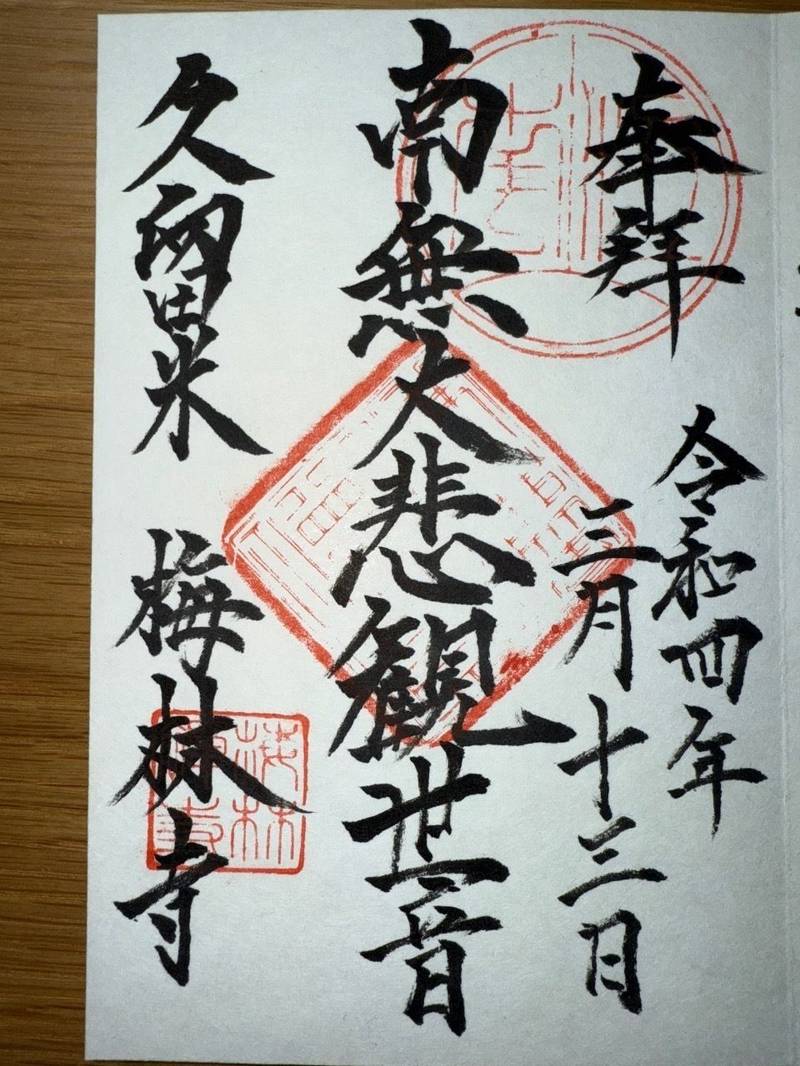 奉拝
令和四年
三月十三日
南無大悲観世音
久留米
梅林寺